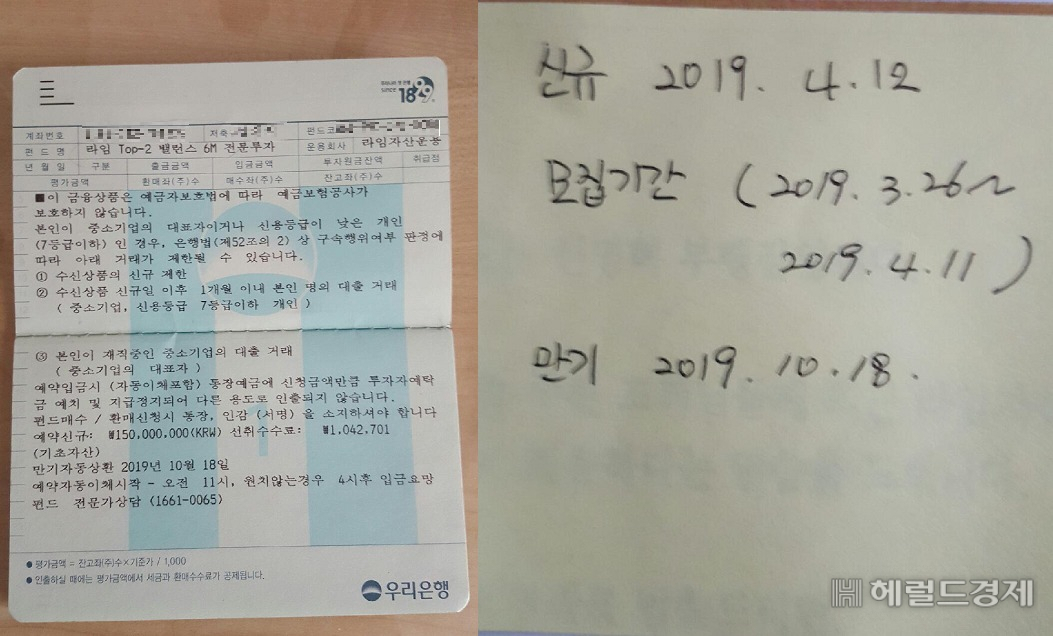 SINCE 1899
계좌번호 저축 펀드코
펀 드 명 라임 Top-2 밸런스 6M 전문투자 운용회사 라임자산운용
년 월 일 구분 출금금액 입금금액 투자원금잔액 취급점
평가금액 환매좌(주)수 매수좌(주)수 잔고좌(주)수
■이 금융상품은 예금자보호법에 따라 예금보험공사가
보호하지 않습니다.
본인이 중소기업의 대표자이거나 신용등급이 낮은 개인
(7등급이하) 인 경우, 은행법(제52조의 2) 상 구속행위여부 판정에
따라 아래 거래가 제한될 수 있습니다.
① 수신상품의 신규 제한
② 수신상품 신규일 이후 1개월 이내 본인 명의 대출 거래
( 중소기업, 신용등급 7등급이하 개인 )
③ 본인이 재직중인 중소기업의 대출 거래
( 중소기업의 대표자 )
예약입금시 (자동이체포함) 통장예금에 신청금액만큼 투자자예탁
금 예치 및 지급정지되어 다른 용도로 인출되지 않습니다.
펀드매수 / 환매신청시 통장, 인감 (서명) 을 소지하셔야 합니다
예약신규: ₩150,000,000(KRW) 선취수수료: ₩1,042,701
(기초자산)
만기자동상환 2019년 10월 18일
예약자동이체시작 - 오전 11시, 원치않는경우 4시후 입금요망
펀드 전문가상담 (1661-0065)
● 평가금액 = 잔고좌(주)수×기준가 / 1,000
● 인출하실 때에는 평가금액에서 세금과 환매수수료가 공제됩니다.
우리은행
신규 2019. 4.12
모집기간 (2019. 3.26~
2019. 4.11 )
만기 2019. 10.18.
헤럴드경제